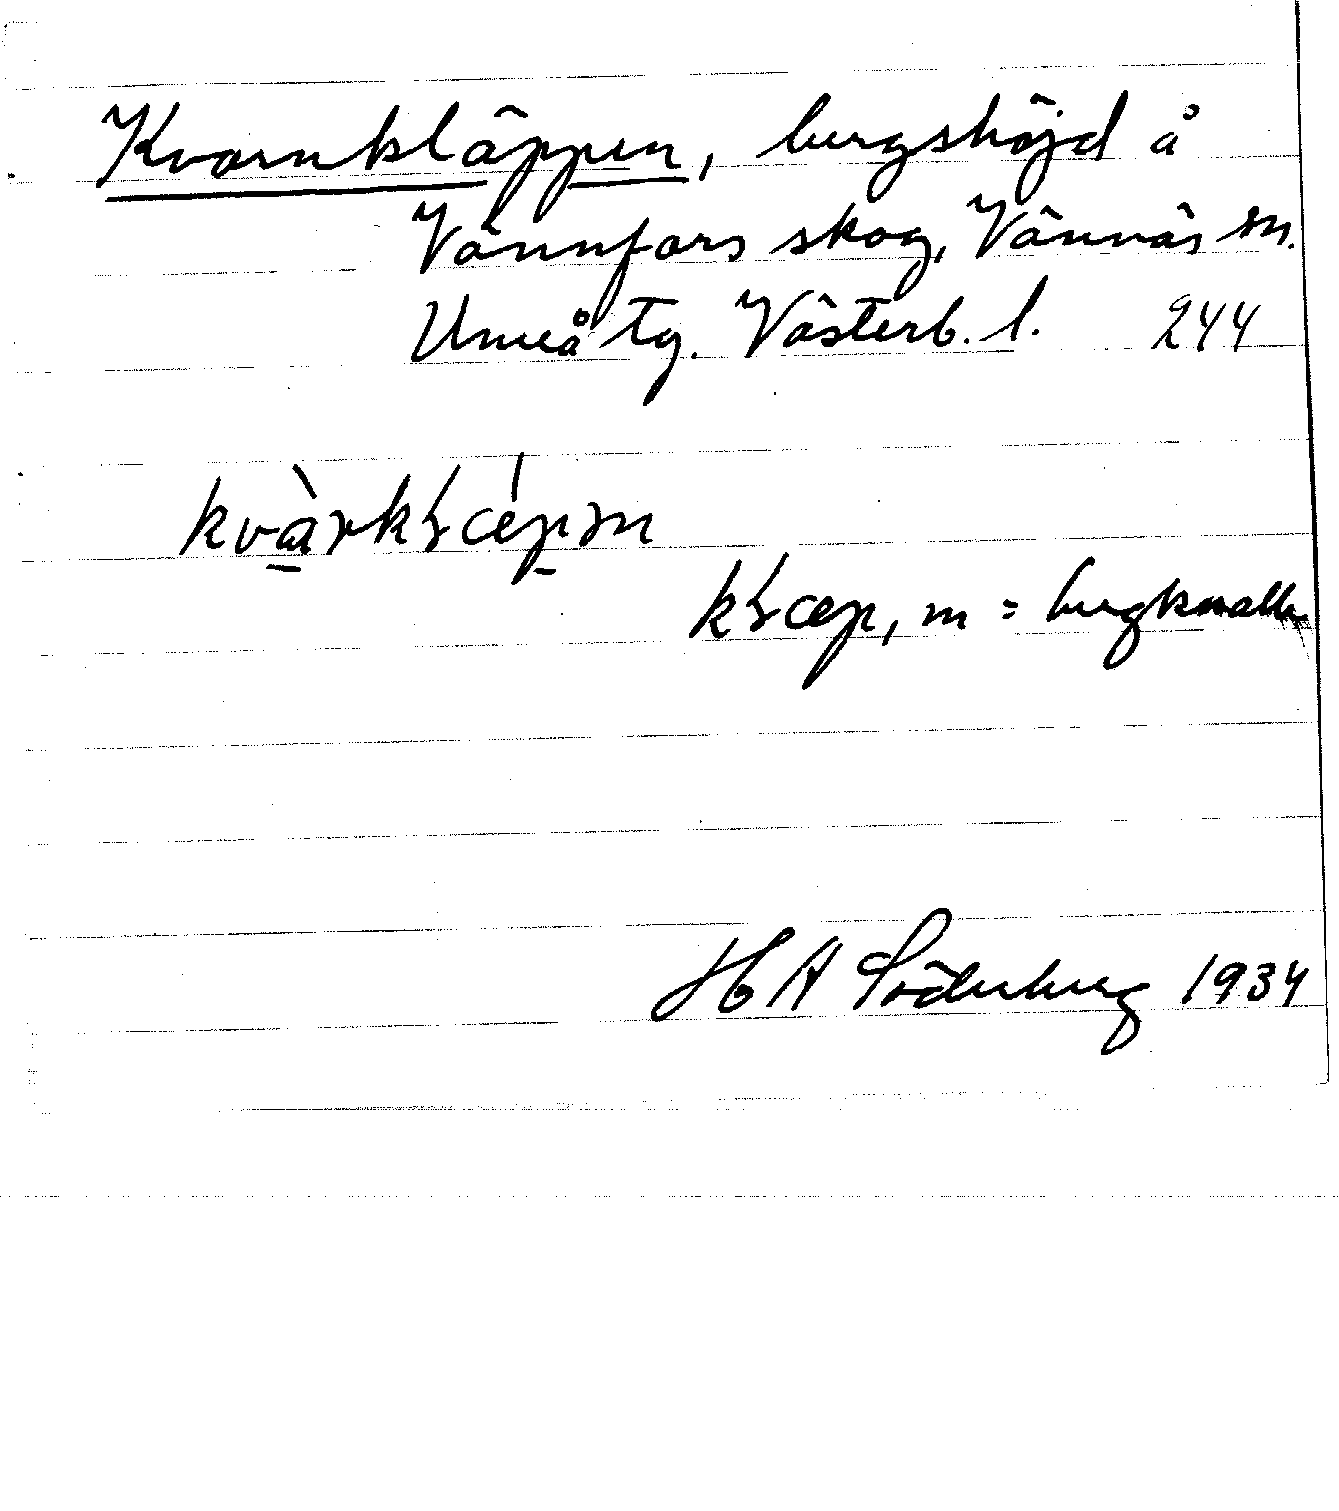 Kvarnkläppen, bergshöjd å
Vännfors skog, Vännäs sn.
Umeå tg. Västerb. l. 244
kvàrkɭǽpm
kɭæp, m = bergknalle
H A Söderberg 1934